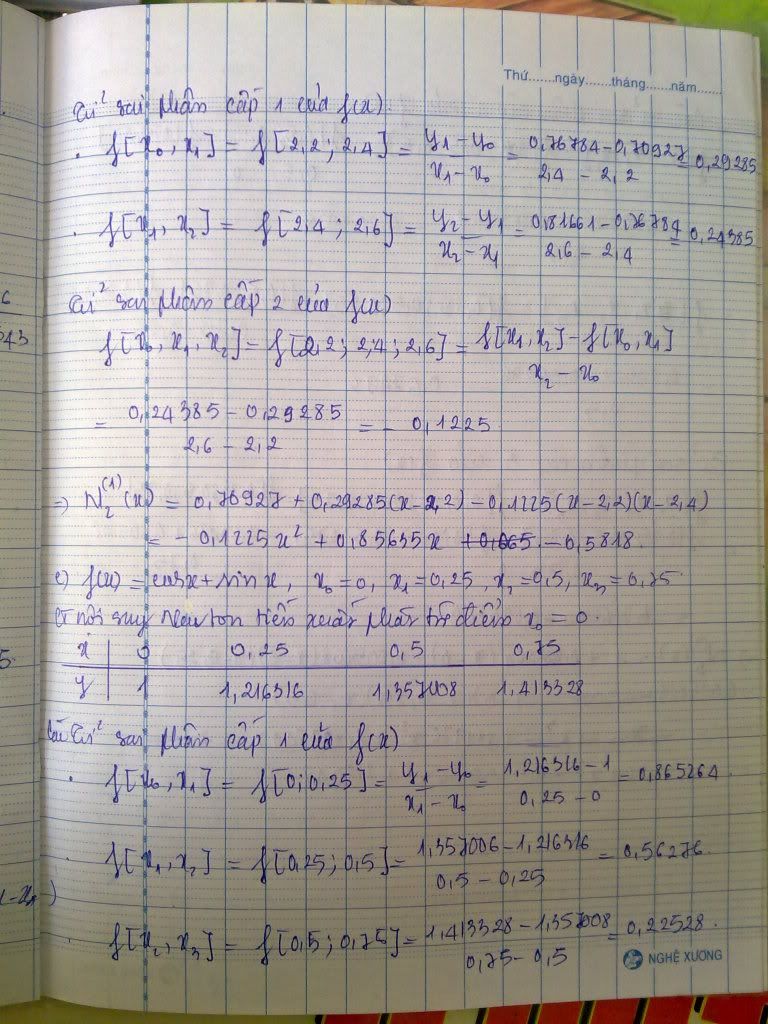 Thứ.......ngày.......tháng.......năm.......
Tỉ² sai phân cấp 1 của f(x).
. f[x₀, x₁] = f[2,2 ; 2,4] = (y₁ - y₀)/(x₁ - x₀) = (0,76784 - 0,70927)/(2,4 - 2,2) = 0,29285
. f[x₁, x₂] = f[2,4 ; 2,6] = (y₂ - y₁)/(x₂ - x₁) = (0,81661 - 0,76784)/(2,6 - 2,4) = 0,24385
6
Tỉ² sai phân cấp 2 của f(x)
543
f[x₀, x₁, x₂] = f[2,2 ; 2,4 ; 2,6] = (f[x₁, x₂] - f[x₀, x₁])/(x₂ - x₀)
= (0,24385 - 0,29285)/(2,6 - 2,2) = - 0,1225
⇒ N₂⁽¹⁾(x) = 0,70927 + 0,29285(x - 2,2) - 0,1225(x - 2,2)(x - 2,4)
= - 0,1225x² + 0,85635x - 0,5818.
c) f(x) = cosx + sin x, x₀ = 0, x₁ = 0,25, x₂ = 0,5, x₃ = 0,75.
nội suy Newton tiến xuất phát từ điểm x₀ = 0.
5.
x | 0 0,25 0,5 0,75
y | 1 1,216316 1,357008 1,413328
Tỉ² sai phân cấp 1 của f(x)
. f[x₀, x₁] = f[0 ; 0,25] = (y₁ - y₀)/(x₁ - x₀) = (1,216316 - 1)/(0,25 - 0) = 0,865264.
. f[x₁, x₂] = f[0,25 ; 0,5] = (1,357006 - 1,216316)/(0,5 - 0,25) = 0,56276.
. f[x₂, x₃] = f[0,5 ; 0,75] = (1,413328 - 1,357008)/(0,75 - 0,5) = 0,22528.
NGHỆ XƯƠNG